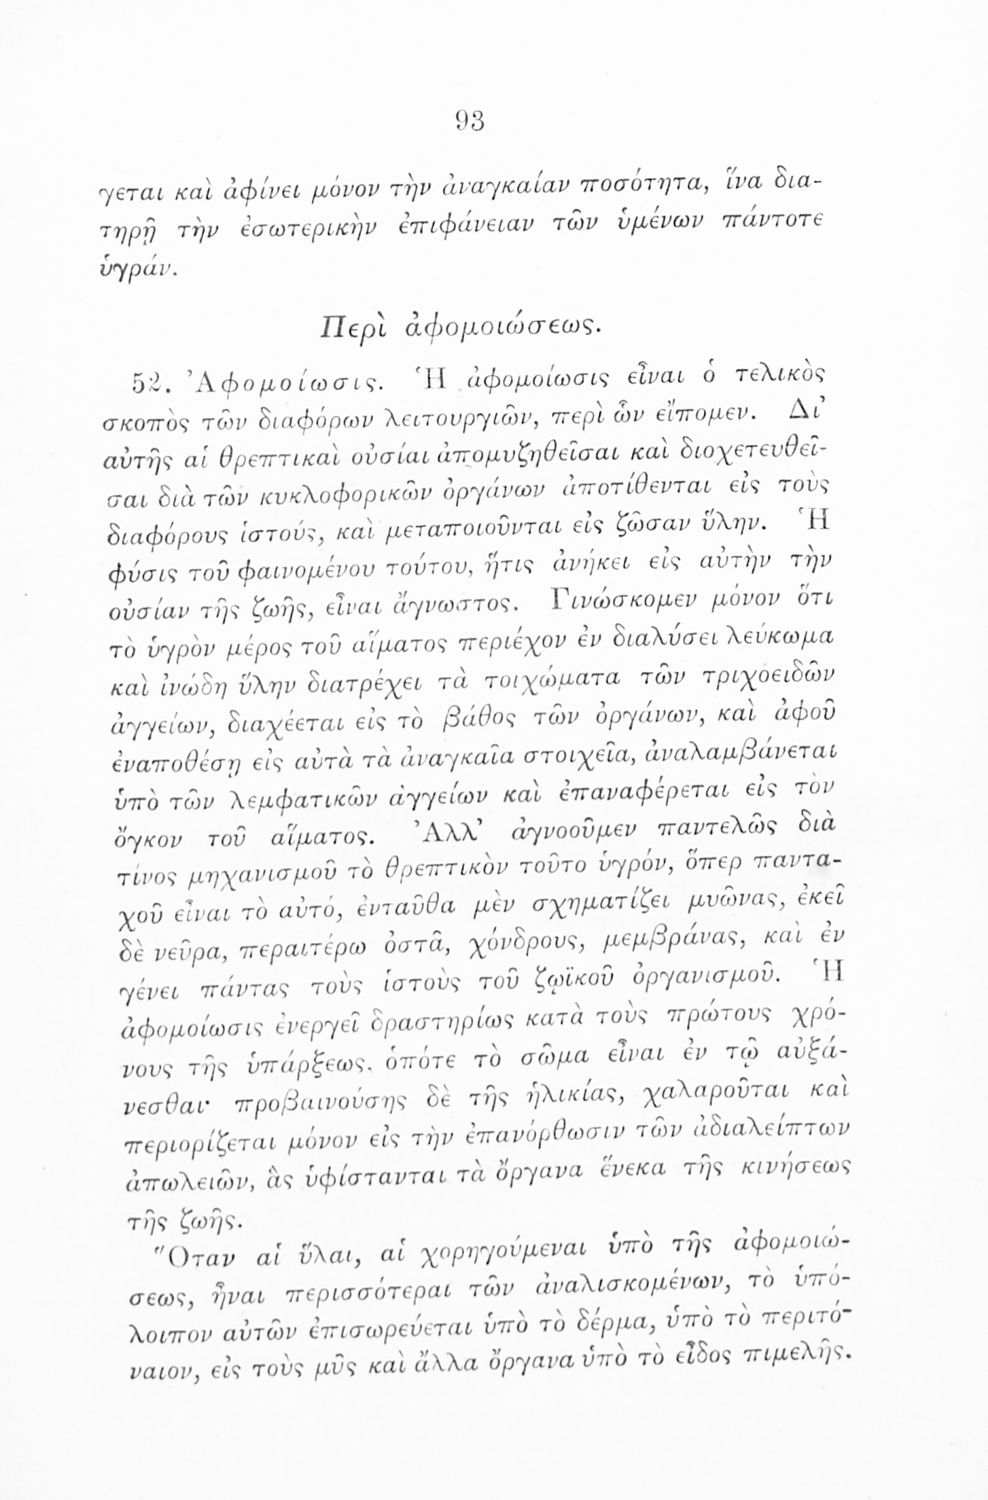 93
γεται καὶ ἀφίνει μόνον τὴν ἀναγκαίαν ποσότητα, ἵνα δια-
τηρῇ τὴν ἐσωτερικὴν ἐπιφάνειαν τῶν ὑμένων πάντοτε
ὑγράν.
Περὶ ἀφομοιώσεως.
52. Ἀφομοίωσις. Ἡ ἀφομοίωσις εἶναι ὁ τελικὸς
σκοπὸς τῶν διαφόρων λειτουργιῶν, περὶ ὧν εἴπομεν. Δι’
αὐτῆς αἱ θρεπτικαὶ οὐσίαι ἀπομυζηθεῖσαι καὶ διοχετευθεῖ-
σαι διὰ τῶν κυκλοφορικῶν ὀργάνων ἀποτίθενται εἰς τοὺς
διαφόρους ἱστούς, καὶ μεταποιοῦνται εἰς ζῶσαν ὕλην. Ἡ
φύσις τοῦ φαινομένου τούτου, ἥτις ἀνήκει εἰς αὐτὴν τὴν
οὐσίαν τῆς ζωῆς, εἶναι ἄγνωστος. Γινώσκομεν μόνον ὅτι
τὸ ὑγρὸν μέρος τοῦ αἵματος περιέχον ἐν διαλύσει λεύκωμα
καὶ ἰνώδη ὕλην διατρέχει τὰ τοιχώματα τῶν τριχοειδῶν
ἀγγείων, διαχέεται εἰς τὸ βάθος τῶν ὀργάνων, καὶ ἀφοῦ
ἐναποθέσῃ εἰς αὐτὰ τὰ ἀναγκαῖα στοιχεῖα, ἀναλαμβάνεται
ὑπὸ τῶν λεμφατικῶν ἀγγείων καὶ ἐπαναφέρεται εἰς τὸν
ὄγκον τοῦ αἵματος. Ἀλλ’ ἀγνοοῦμεν παντελῶς διὰ
τίνος μηχανισμοῦ τὸ θρεπτικὸν τοῦτο ὑγρόν, ὅπερ παντα-
χοῦ εἶναι τὸ αὐτό, ἐνταῦθα μὲν σχηματίζει μυῶνας, ἐκεῖ
δὲ νεῦρα, περαιτέρω ὀστᾶ, χόνδρους, μεμβράνας, καὶ ἐν
γένει πάντας τοὺς ἱστοὺς τοῦ ζῳϊκοῦ ὀργανισμοῦ. Ἡ
ἀφομοίωσις ἐνεργεῖ δραστηρίως κατὰ τοὺς πρώτους χρό-
νους τῆς ὑπάρξεως. ὁπότε τὸ σῶμα εἶναι ἐν τῷ αὐξά-
νεσθαι· προβαινούσης δὲ τῆς ἡλικίας, χαλαροῦται καὶ
περιορίζεται μόνον εἰς τὴν ἐπανόρθωσιν τῶν ἀδιαλείπτων
ἀπωλειῶν, ἃς ὑφίστανται τὰ ὄργανα ἕνεκα τῆς κινήσεως
τῆς ζωῆς.
Ὅταν αἱ ὕλαι, αἱ χορηγούμεναι ὑπὸ τῆς ἀφομοιώ-
σεως, ἦναι περισσότεραι τῶν ἀναλισκομένων, τὸ ὑπό-
λοιπον αὐτῶν ἐπισωρεύεται ὑπὸ τὸ δέρμα, ὑπὸ τὸ περιτό-
ναιον, εἰς τοὺς μῦς καὶ ἄλλα ὄργανα ὑπὸ τὸ εἶδος πιμελῆς.